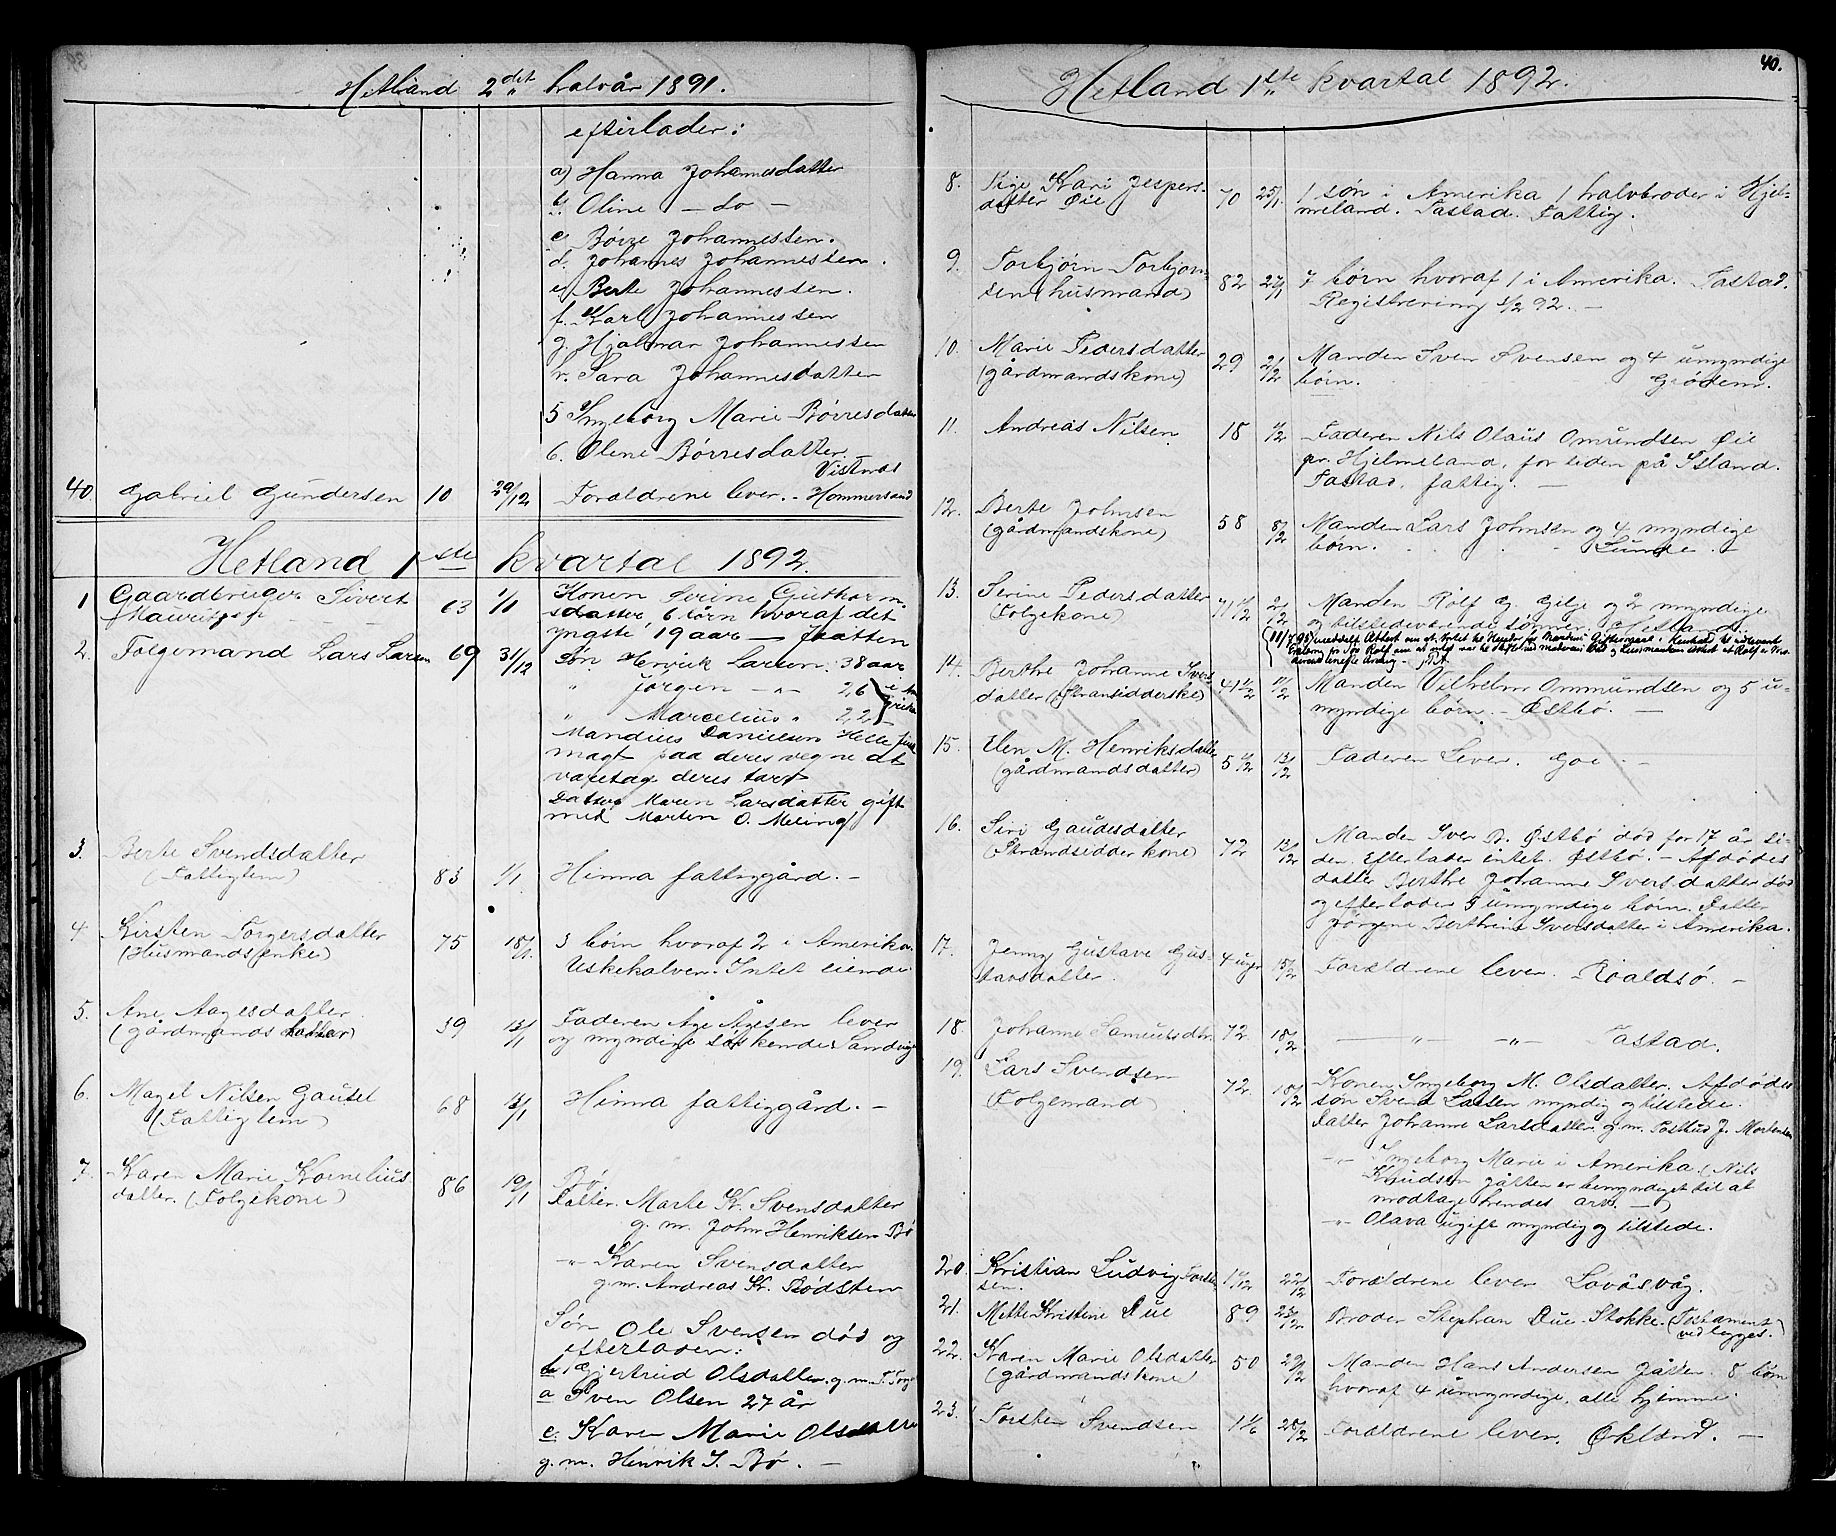 Hetland 2det halvår 1891.
efterlader:
a) Hanna Johannesdatter
b. Oline — do —
c. Børre Johannessen.
d. Johannes Johannessen.
e. Berte Johannessen.
f. Karl Johannessen
g. Hjalmar Johannessen
h. Sara Johannesdatter
5 Ingeborg Marie Børresdatter
6. Olene Børresdatter.
Vistnæs
40 Gabriel Gundersen 10 29/12 Forældrene lever. - Hommersand
Hetland 1ste kvartal 1892.
1 Gaardbruger Sivert 63 1/1 Konen Serine Guttorm-
sdatter, 6 børn hvoraf det
yngste 19 aar — Jaatten
2. Folgemand Lars Larsen 69 31/12 Søn Henrik Larsen 38 aar
" Jørgen — " — 26
" Marcelius " 22
Mandius Danielsen Helle
magt paa deres vegne at
varetage deres tarv
Datter Maren Larsdatter gift
med Morten O. Meling
3. Berte Svendsdatter
(Fattiglem) 83 1/1 Hinna fattiggård. -
4 Kirsten Torgersdatter 75 18/1 3 børn hvoraf 2 i Amerika
(Husmandsenke) Uskekalven. Intet eiende
5. Ane Aagesdatter
(gårdmandsdatter) 39 13/1 Faderen Åge Ågesen lever
og myndige søskende. Sandvige
6. Magel Nilsen Gausel 68 13/1 Hinna fattiggård. -
(Fattiglem)
7. Karen Marie Kornelius
datter. (Folgekone) 86 19/1 Bø.
Datter. Marte K. Svensdatter
g. m. John Henriksen Bø
-"- Karen Svensdatter
g.m. Andreas Kr. Bødsten
Søn Ole Svensen død og
efterlader:
b Gjertrud Olsdatter g.m.
a Sven Olsen 27 år
c. Karen Marie Olsdatter
g.m. Henrik J. Bø. —
40.
Hetland 1ste kvartal 1892.
8. Pige Kari Jespers-
datter Øie 70 25/1 1 søn i Amerika 1 halvbroder i Hjel-
meland. Tastad. Fattig.
9. Torbjørn Torbjørn-
sen (husmand) 82 27/1 7 børn hvoraf 1 i Amerika. Tastad.
Registrering 5/2 92. —
10. Marie Pedersdatter
(gårdmandskone) 29 2/2 Manden Sven Svensen og 4 umyndige
børn. Grødem.
11. Andreas Nilsen 18 1/2 Faderen Nils Olaus Omundsen Øie
pr. Hjelmeland, for tiden på Island.
Tastad, fattig. —
12. Berte Johnsen
(gårdmandskone) 58 8/2 Manden Lars Johnsen og 4 myndige
børn. Lunde. -
13. Serine Pedersdatter
(Folgekone) 71 1/2 2/2 Manden Rolf G. Gilje og 2 myndige
og tilstedeværende sønner. Hetland
14. Berthe Johanne Ivers-
datter (Strandsidderske) 41 1/2 11/2 Manden Vilhelm Ommundsen og 5 u-
myndige børn. - Østbø. —
15. Elen M. Henriksdatter
(gårdmandsdatter) 13/2 Faderen lever. Goe. -
16. Siri Gaudesdatter
(Strandsidderkone) 72 13/2 Manden Iver B. Østbø død for 17 år si-
den. Efterlader intet. Østbø. - Afdødes
datter Berthe Johanne Iversdatter død
og efterlader 5 umyndige børn. Datter
Jørgene Berthine Iversdatter i Amerika.
17. Jenny Gustave Gus-
tavsdatter. 4 uger 15/2 Forældrene lever. Roaldsø. -
18. Johanne Samuelsdtr. 72 18/2 — " — — " — Tastad.
19. Lars Svendsen
(Folgemand) 72. 18/2 Konen Ingeborg M. Olsdatter. Afdødes
søn Svend Larsen myndig og tilstede.
Datter Johanne Larsdatter g.m. J. Mortensen
-"- Ingeborg Marie i Amerika. (Nils
Knudsen Jåtten er bemyndiget til at
modtage hendes arv. —)
-"- Olava ugift myndig og tilstede.
20. Kristian Ludvig
sen. 22/2 Forældrene lever Lovåsvåg.
21. Mette Kristine Due 89 23/2 Broder Stephan Due Stokke. (Testament
vedlegges.)
22. Karen Marie Olsdatter
(gårdmandskone) 50 29/2 Manden Hans Andersen Jåtten. 8 børn
hvoraf 4 umyndige, alle hjemme.
23. Torsten Svendsen 1 1/6 28/2 Forældrene lever. Orkland. —